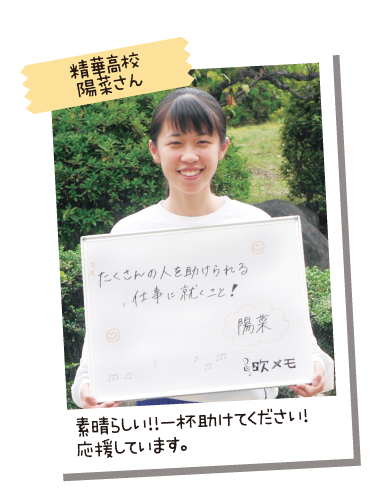 精華高校
陽菜さん
たくさんの人を助けられる
仕事に就くこと!
陽菜
吹メモ
素晴らしい!!一杯助けてください!
応援しています。